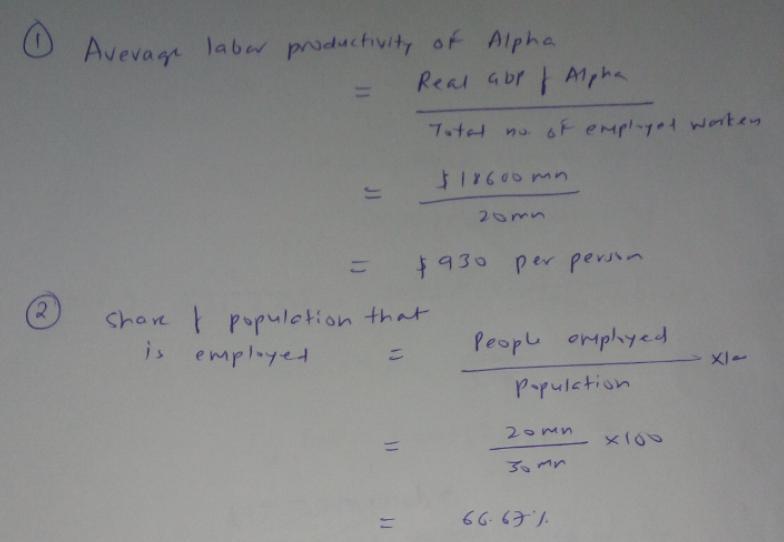 ① Average labor productivity of Alpha
= Real GDP of Alpha
Total no. of employed workers
= $18600 mn
20mn
= $930 per person
② Share of population that
is employed = People employed
Population
×10
= 20mn
30mn
×100
= 66.67%